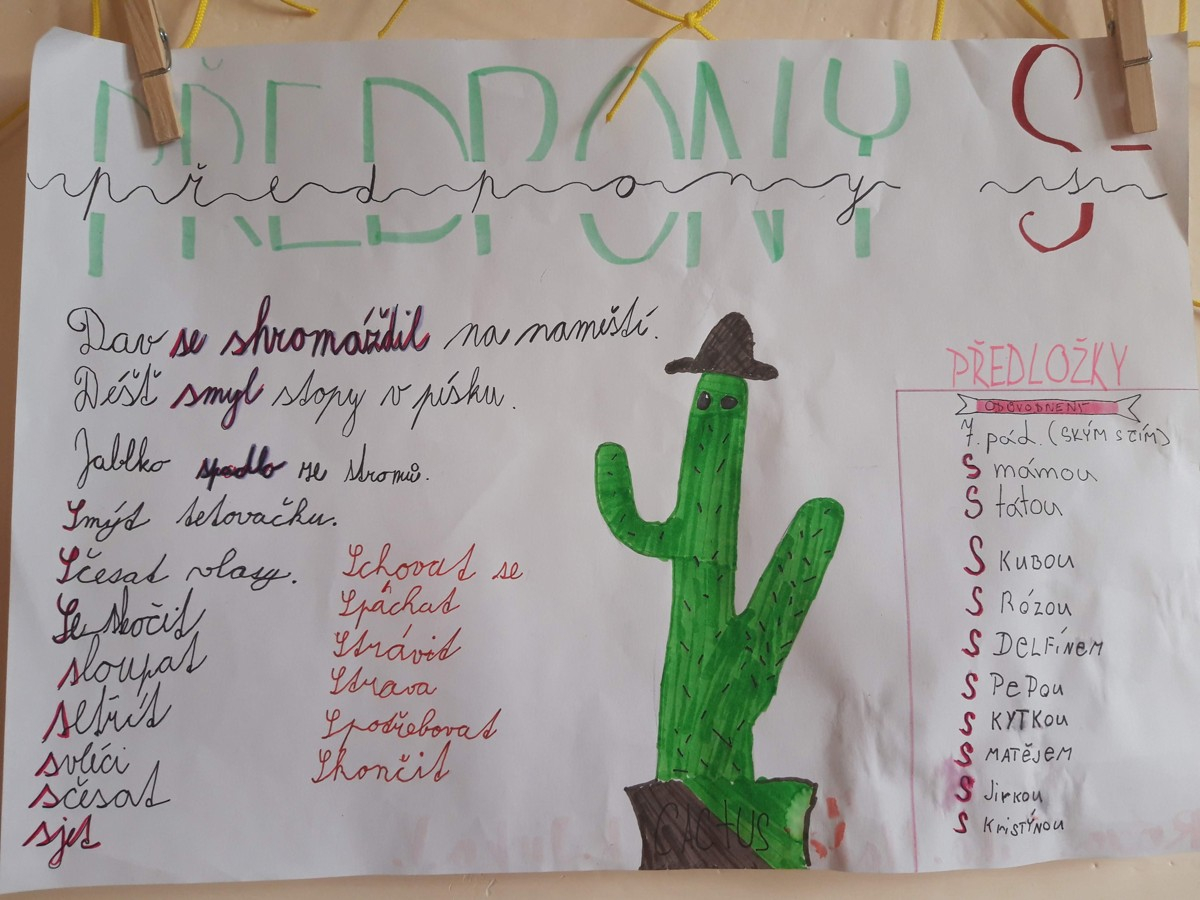 PŘEDPONY S-
předpony s-
Dav se shromáždil na naměstí.
Déšť smyl stopy v písku.
Jablko spadlo ze stromů.
Smýt tetovačku.
Sčesat vlasy.
Se skočit
sloupat
setřít
svléci
sčesat
sjet
Schovat se
Spáchat
Strávit
Strava
Spotřebovat
Skončit
CACTUS
PŘEDLOŽKY
ODŮVODNENÍ
7. pád. (SKÝM S ČÍM)
S mámou
S tátou
S KUBOU
S RÓZOU
S DELFÍNEM
S PEPOU
S KYTKOU
S MATĚJEM
S Jirkou
S KRISTÝNOU